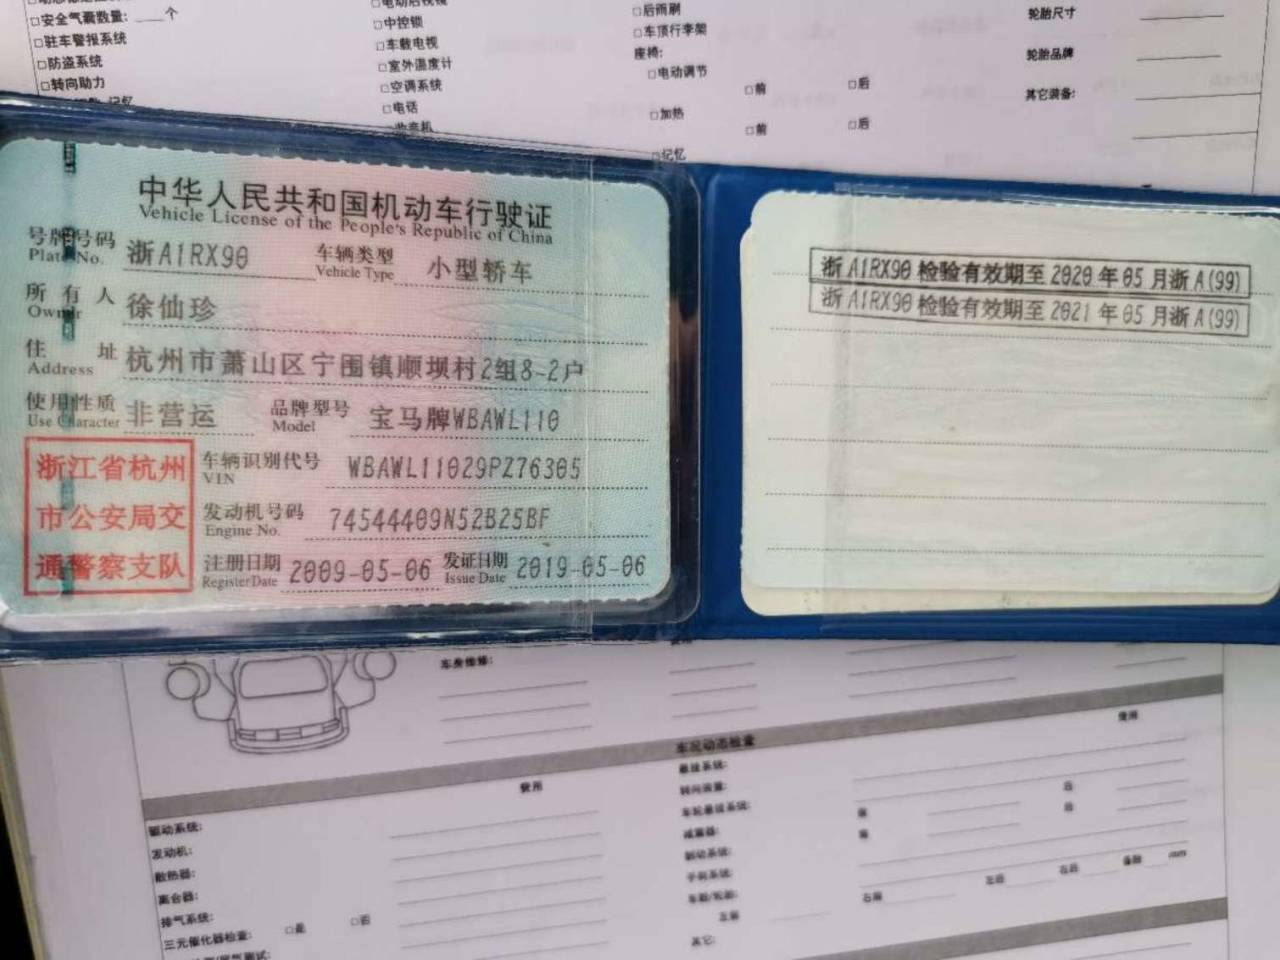 □安全气囊数量: ___个
□驻车警报系统
□防盗系统
□转向助力
□中控锁
□车载电视
□室外温度计
□空调系统
□电话
□后雨刷
□车顶行李架
座椅:
□电动调节
□前 □后
□加热
□前 □后
□记忆
轮胎尺寸
轮胎品牌
其它装备:
中华人民共和国机动车行驶证
Vehicle License of the People's Republic of China
号牌号码 浙A1RX90 车辆类型 小型轿车
Plate No. Vehicle Type
所有人 徐仙珍
Owner
住址 杭州市萧山区宁围镇顺坝村2组8-2户
Address
使用性质 非营运 品牌型号 宝马牌WBAWL110
Use Character Model
浙江省杭州
市公安局交
通警察支队
车辆识别代号 WBAWL11029PZ76305
VIN
发动机号码 74544409N52B25BF
Engine No.
注册日期 2009-05-06 发证日期 2019-05-06
Register Date Issue Date
浙A1RX90检验有效期至2020年05月浙A(99)
浙A1RX90检验有效期至2021年05月浙A(99)
车身维修:
车况动态检查
费用 费用
驱动系统:
发动机:
散热器:
离合器:
排气系统:
三元催化器检查: □是 □否
悬挂系统:
车轮悬挂系统:
减震器:
制动系统:
手刹系统:
车胎/轮胎:
其它: